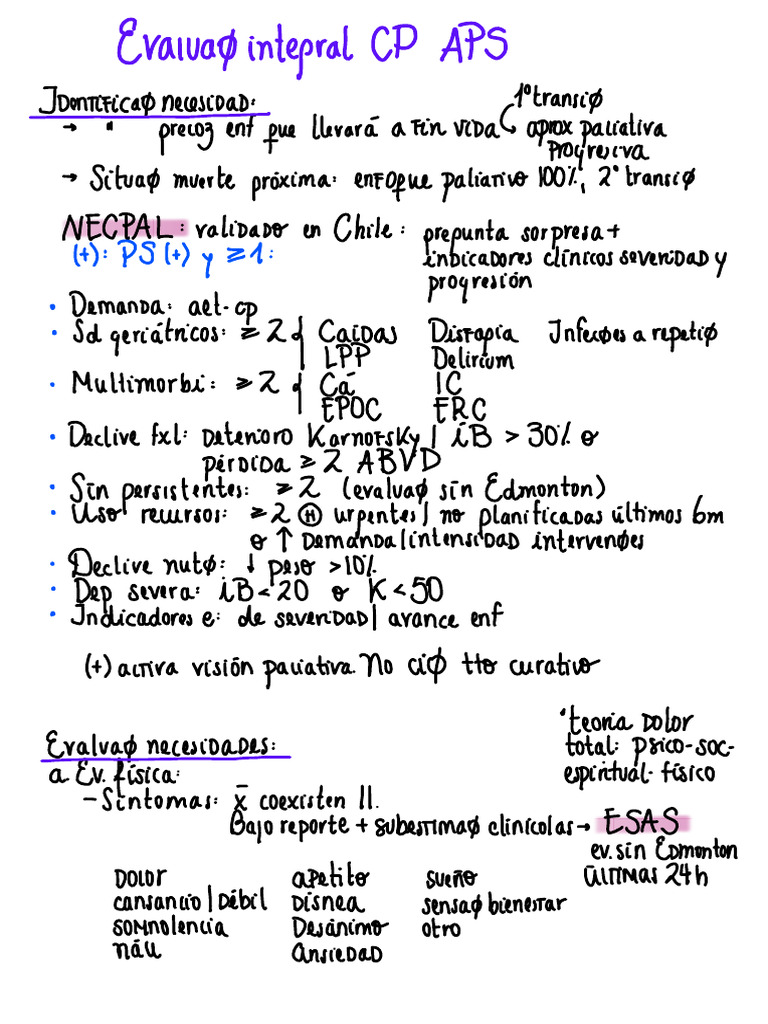 Evaluaø integral CP APS
Identificaø necesidad:
1º transiø
→ " precoz enf que llevará a fin vida aprox paliativa
progresiva
→ Situaø muerte próxima: enfoque paliativo 100%, 2º transiø
NECPAL: validado en Chile: pregunta sorpresa +
(+): PS (+) y ≥ 1: indicadores clínicos severidad y
progresión
• Demanda: aet-cp
• Sd geriátricos: ≥ 2 { Caídas Disfagia Infeøes a repetiø
LPP Delirium
• Multimorbi: ≥ 2 { Cá IC
EPOC ERC
• Declive fxl: deterioro Karnofsky / iB > 30% o
pérdida ≥ 2 ABVD
• Sín persistentes: ≥ 2 (evaluaø sín Edmonton)
• Uso recursos: ≥ 2 Ⓗ urgentes / no planificadas últimos 6m
o ↑ demanda / intensidad intervenøes
• Declive nutø: ↓ peso > 10%
• Dep severa: iB < 20 o K < 50
• Indicadores e: de severidad / avance enf
(+) activa visión paliativa. No ciø tto curativo
• teoría dolor
Evaluaø necesidades: total: psico-soc-
a Ev. física: espiritual-físico
– Síntomas: x̄ coexisten 11.
Bajo reporte + subestimaø clínicolas → ESAS
ev. sín Edmonton
últimas 24h
Dolor apetito sueño
cansancio / débil disnea sensaø bienestar
somnolencia Desánimo otro
náu ansiedad